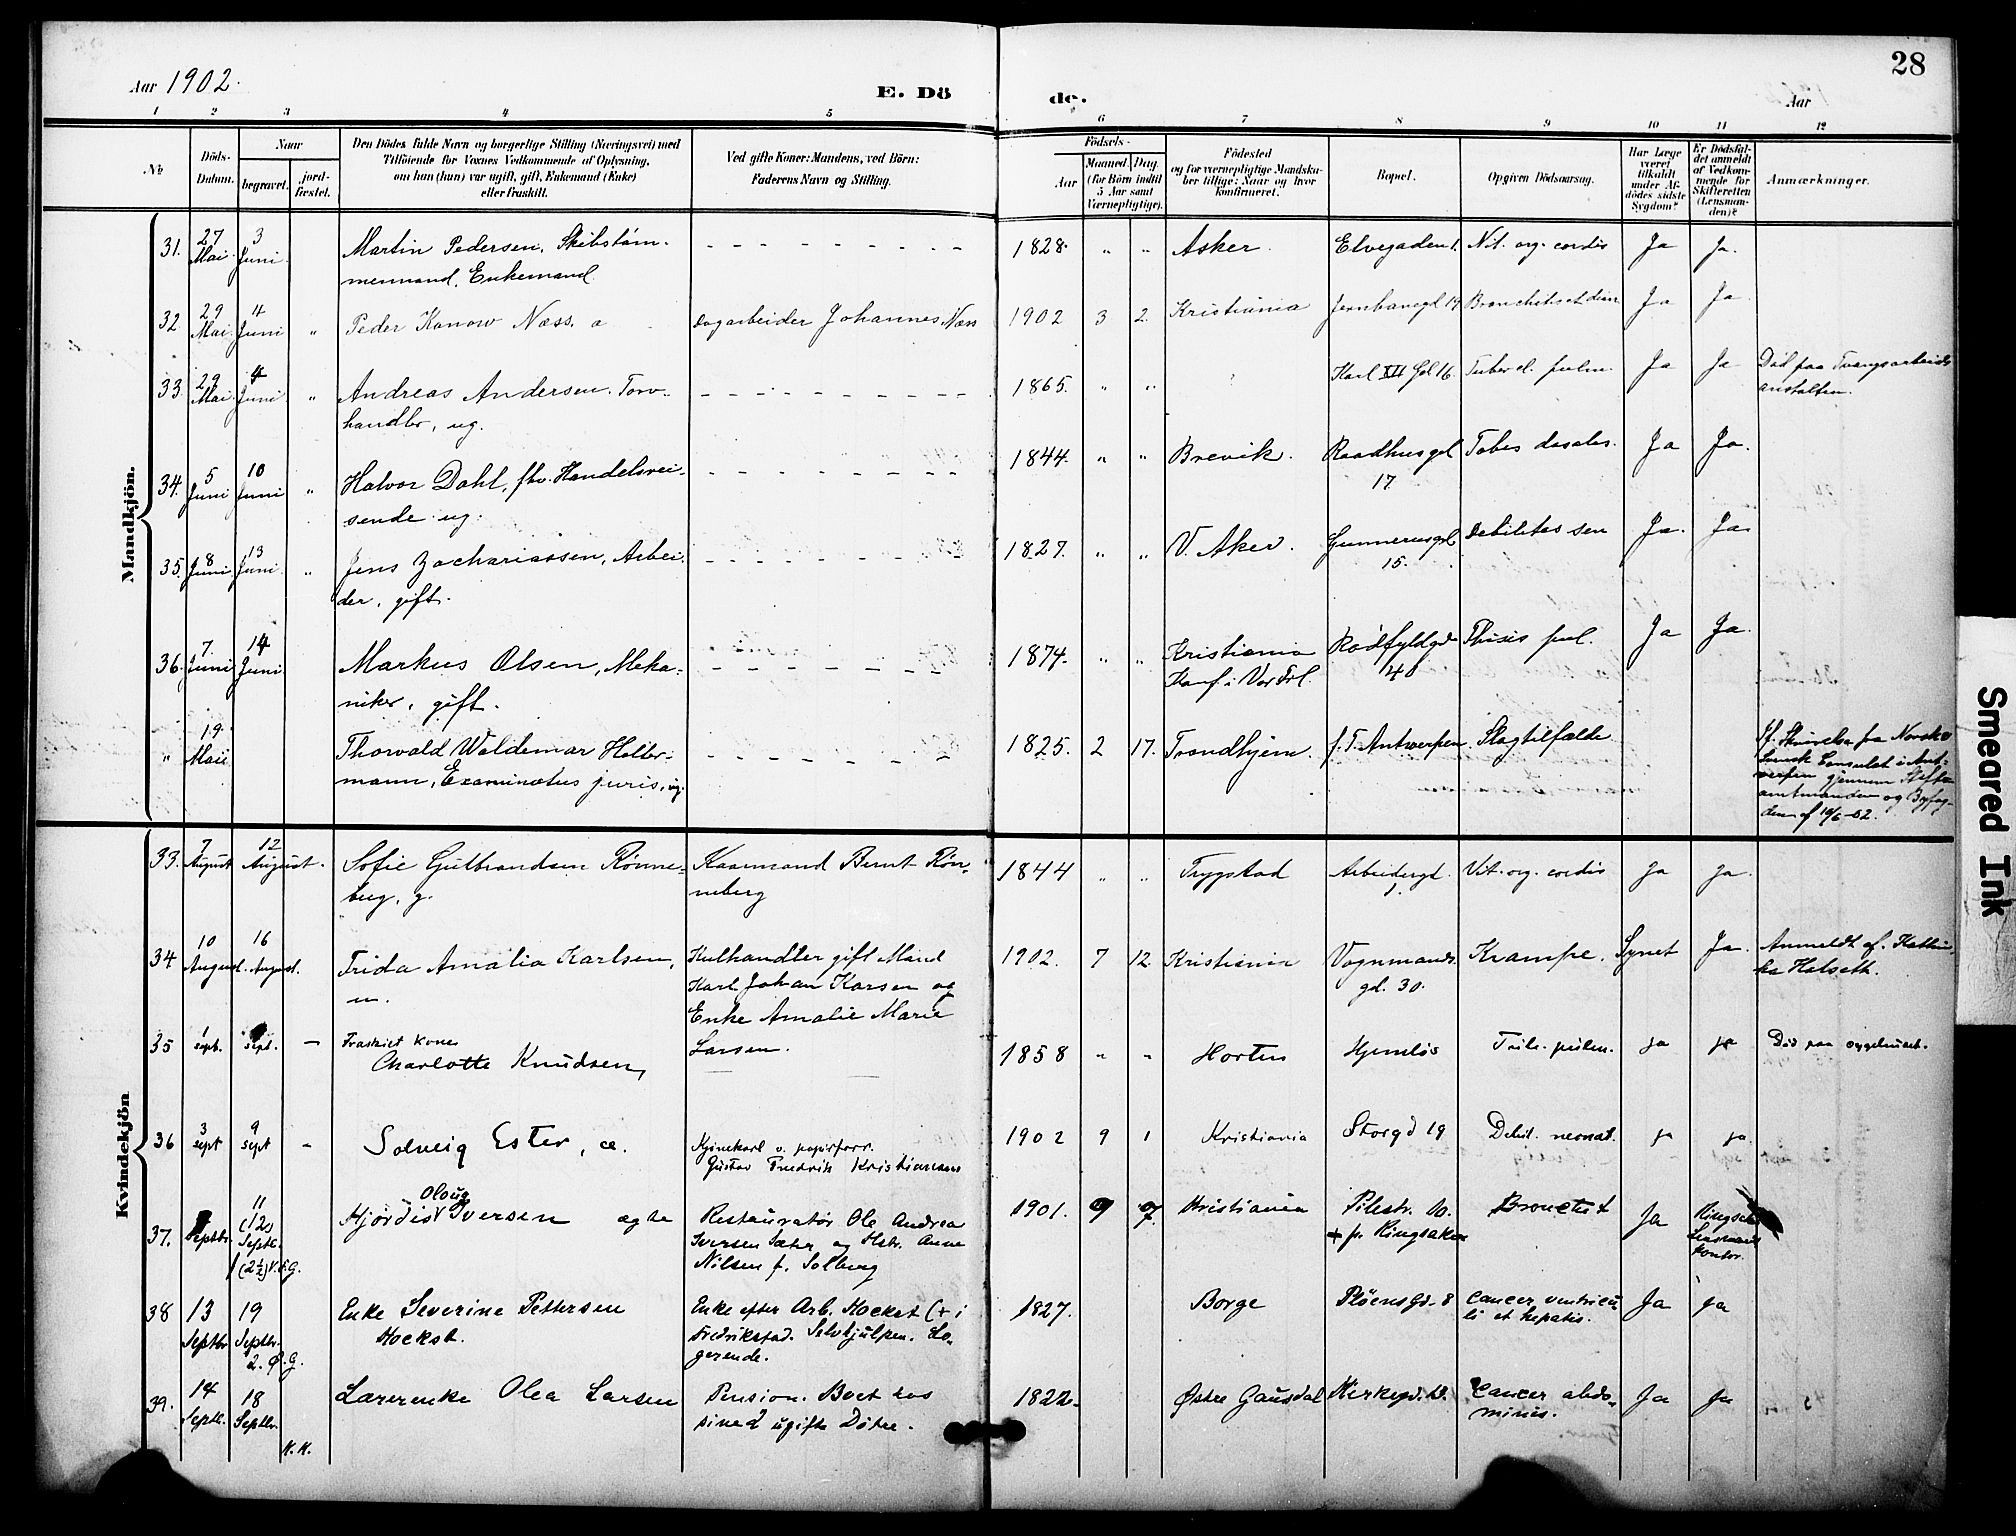 28
Aar 1902.
E. Dö
de.
Aar
1 2 3 4 5 6 7 8 9 10 11 12
No
Döds-
Datum.
Naar
begravet.
jord-
fæstet.
Den Dödes fulde Navn og borgerlige Stilling (Næringsvei) med
Tilföiende for Voxnes Vedkommende af Oplysning,
om han (hun) var ugift, gift, Enkemand (Enke)
eller fraskilt.
Ved gifte Koner: Mandens, ved Börn:
Faderens Navn og Stilling.
Födsels-
Aar
Maaned. Dag.
(for Börn indtil
5 Aar samt
Værnepligtige).
Födested
og for værnepligtige Mandska-
ber tillige: Naar og hvor
konfirmeret.
Bopæl.
Opgiven Dödsaarsag.
Har Læge
været
tilkaldt
under Af-
dödes sidste
Sygdom?
Er Dödsfal-
det anmeldt
af Vedkom-
mende for
Skifteretten
(Lensman-
den)?
Anmærkninger.
Mandkjön.
31. 27 Mai 3 Juni Martin Pedersen, Skibstøm-
mermand, Enkemand. 1828. " " Asker. Elvegaden 1. Vit. org. cordis Ja Ja.
32. 29 Mai 4 Juni " Peder Kanow Næss. Dagarbeider Johannes Næss 1902 3 2. Kristiania Jernbanegd 19 Ja Ja
33. 29 Mai 4 Juni " Andreas Andersen. Torv-
handler, ug. 1865. " " Karl XII Gd 16. Tubercl. pulm. Ja Ja Død paa Tvangsarbeids
anstalten.
34. 5 Juni 10 Juni " Halvor Dahl, fhv. Handelsrei-
sende ug. 1844. " " Brevik. Raadhusgd
17. Tabes dorsales. Ja Ja.
35. 8 Juni 13 Juni " Jens Zachariassen, Arbei-
der, gift. 1827. " " V. Aker. Gunnerusgd
15. Debilitas sen Ja. Ja
36. 7. Juni 14 Juni Markus Olsen, Meka-
niker, gift. 1874. " " Kristiania
Konf. i Vor Frl. Rødfyldgd
40 Thisis pul. Ja Ja.
" 19. Mai Thorvald Waldemar Holter-
mann, Examinatus juris, ug. 1825. 2 17. Trondhjem. f. T. Antwerpen. Slagtilfælde Jf. Skrivelse fra Norske
Svensk Consulat i Ant-
verpen gjennem Stift-
amtmanden og Byfog-
den af 10/6-02.
Kvindekjön
33. 7 August 12 August. Sofie Gulbrandsen Rønne-
berg, g. Kaarmand Bernt Røn-
neberg 1844 " " Trygstad Arbeidergd.
1. Vit. org. cordis Ja Ja.
34 10 August. 16 August. Frida Amalia Karlsen,
u. Kulhandler gift Mand
Karl Johan Karsen og
Enke Amalie Marie
Larsen. 1902. 7 12. Kristiania Vognmands.
gd. 30. Krampe. Synet Ja. Anmeldt af. Kathin-
ka Halseth.
35 1 sept. sept. – Fraskilt Kone
Charlotte Knudsen, 1858 " " Horten Hjemløs Tub. pulm. Ja ja Død paa sygehuset.
36 3 sept 9 sept – Solveig Ester, æ. Kjørekarl v. papirforr.
Gustav Fredrik Kristiansen 1902 9 1 Kristiania Storgd 19 Debil. neonat. ja ja.
37. Septbr. 11 (12) Septbr. Hjördis Oloug Iversen ægte Restauratör Ole Andrea
Iversen Sæter og Hstr. Anne
Nilsen f. Solberg 1901. 9 7. Kristiania Pilestr. 
+ p. Ringsaker Bronchit Ja Ringsaker
Lensmands
kontor.
38 13 Septbr 19 Septbr.
2. Ø. G. Enke Severine Pettersen
Hockst. Enke efter Arb. Hockst (+ i
Fredrikstad. Selvhjulpen. Lo-
gerende. 1827. Borge Plöensgd. 8 Cancer ventricu
li et hepatis. Ja ja
39. 14 Septb. 18 Septbr.
K. K. Lærerenke Olea Larsen Pension. Boet hos
sine 2 ugifte Döttre. 1822. Østre Gausdal Kirkegd. Cancer abdo-
minis. Ja Ja
Smeared Ink